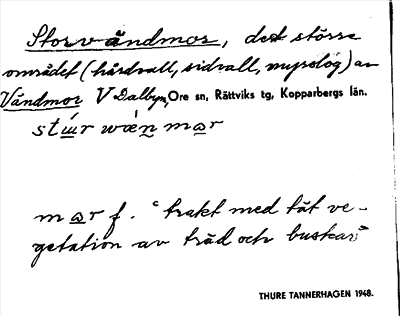 Storvåndmor, det större
området (hårdvall, sidvall, myrslog) av
Våndmor V Dalbyn, Ore sn, Rättviks tg, Kopparbergs län.
mar f. "trakt med tät ve-
getation av träd och buskar"
THURE TANNERHAGEN 1948.